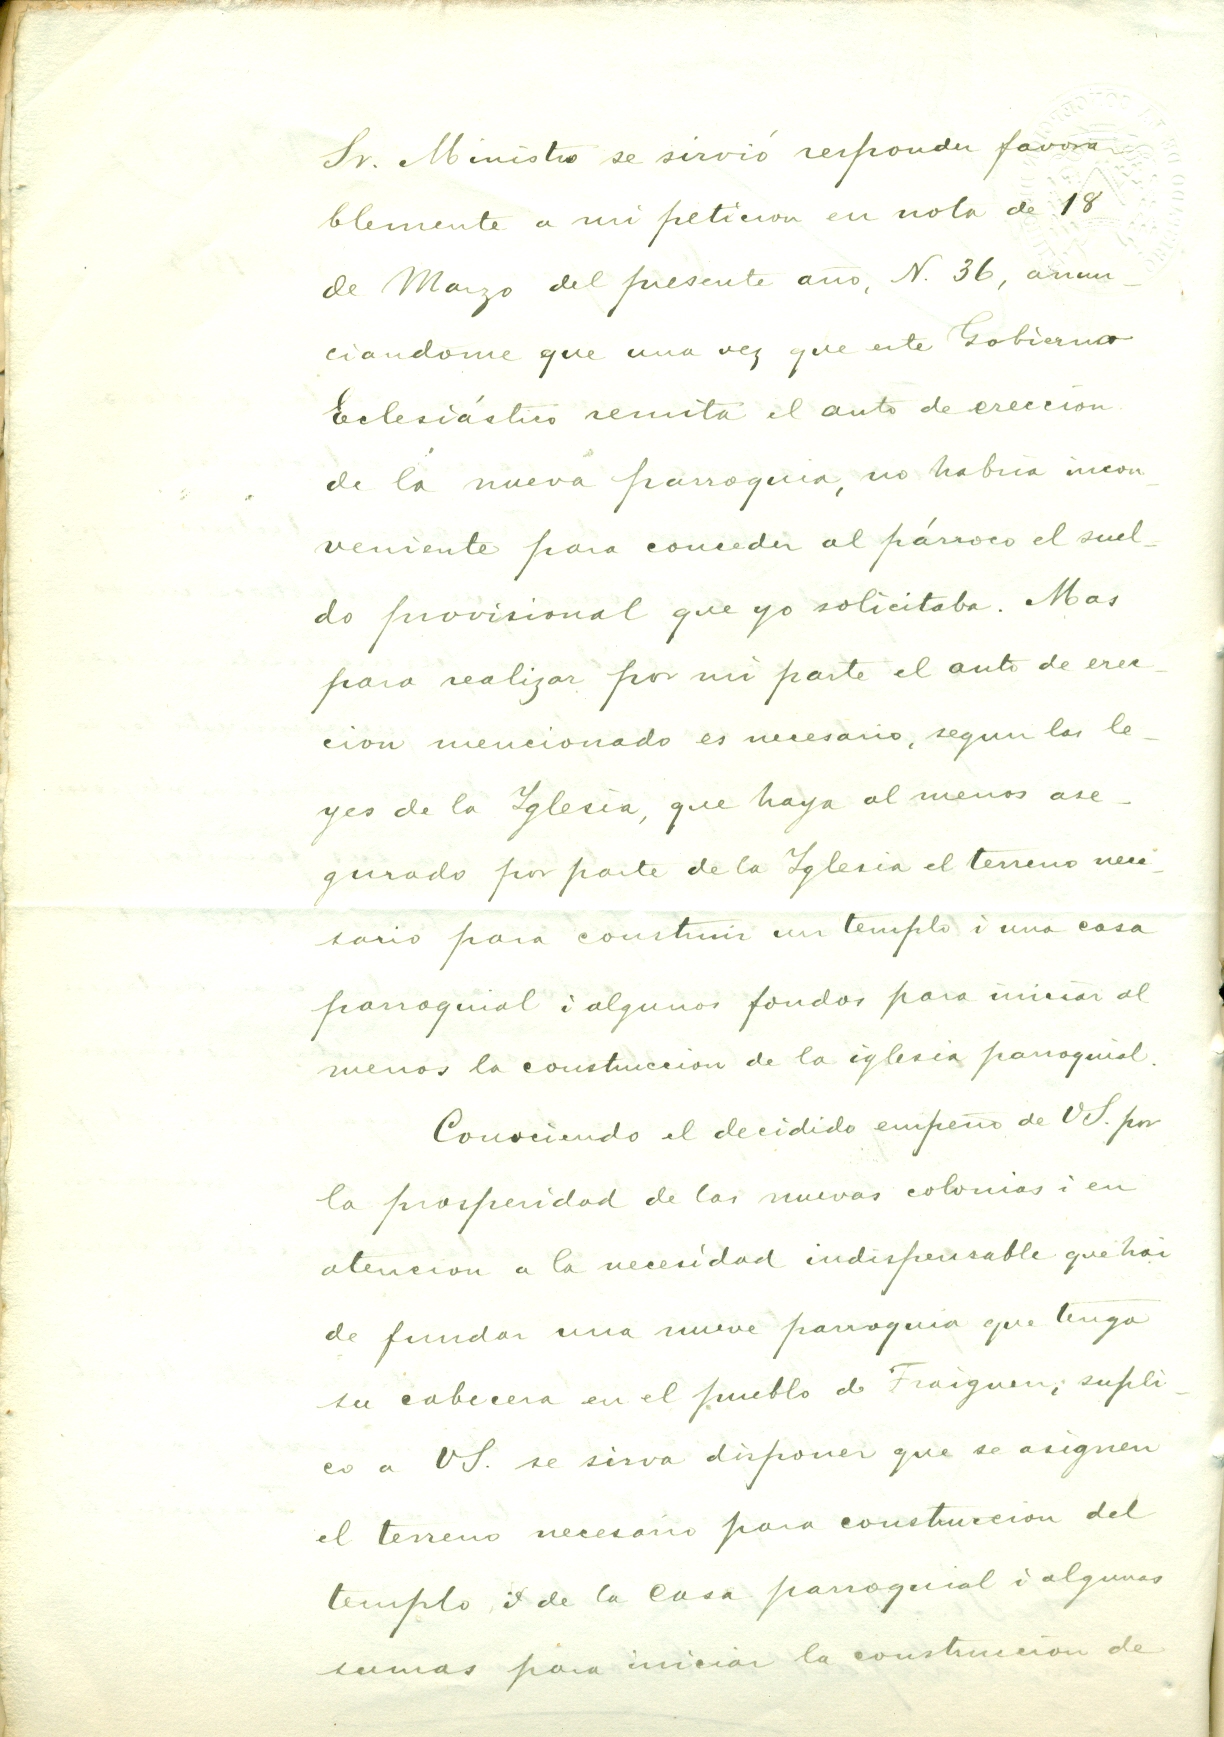 Sr. Ministro se sirvió responder favora
blemente a mi peticion en nota de 18
de Marzo del presente año, N. 36, anun-
ciandome que una vez que este Gobierno
Eclesiástico remita el auto de ereccion
de la nueva parroquia, no habria incon-
veniente para conceder al párroco el suel-
do provisional que yo solicitaba. Mas
para realizar por mi parte el auto de erec-
cion mencionado es necesario, segun las le-
yes de la Iglesia, que haya al menos ase-
gurado por parte de la Iglesia el terreno nece-
sario para construir un templo i una casa
parroquial i algunos fondos para iniciar al
menos la construccion de la iglesia parroquial.
Conociendo el decidido empeño de VS. por
la prosperidad de las nuevas colonias i en
atencion a la necesidad indispensable que hai
de fundar una nueve parroquia que tenga
su cabecera en el pueblo de Traiguen, supli-
co a VS. se sirva disponer que se asignen
el terreno necesario para construccion del
templo i de la casa parroquial i algunas
sumas para iniciar la construccion de